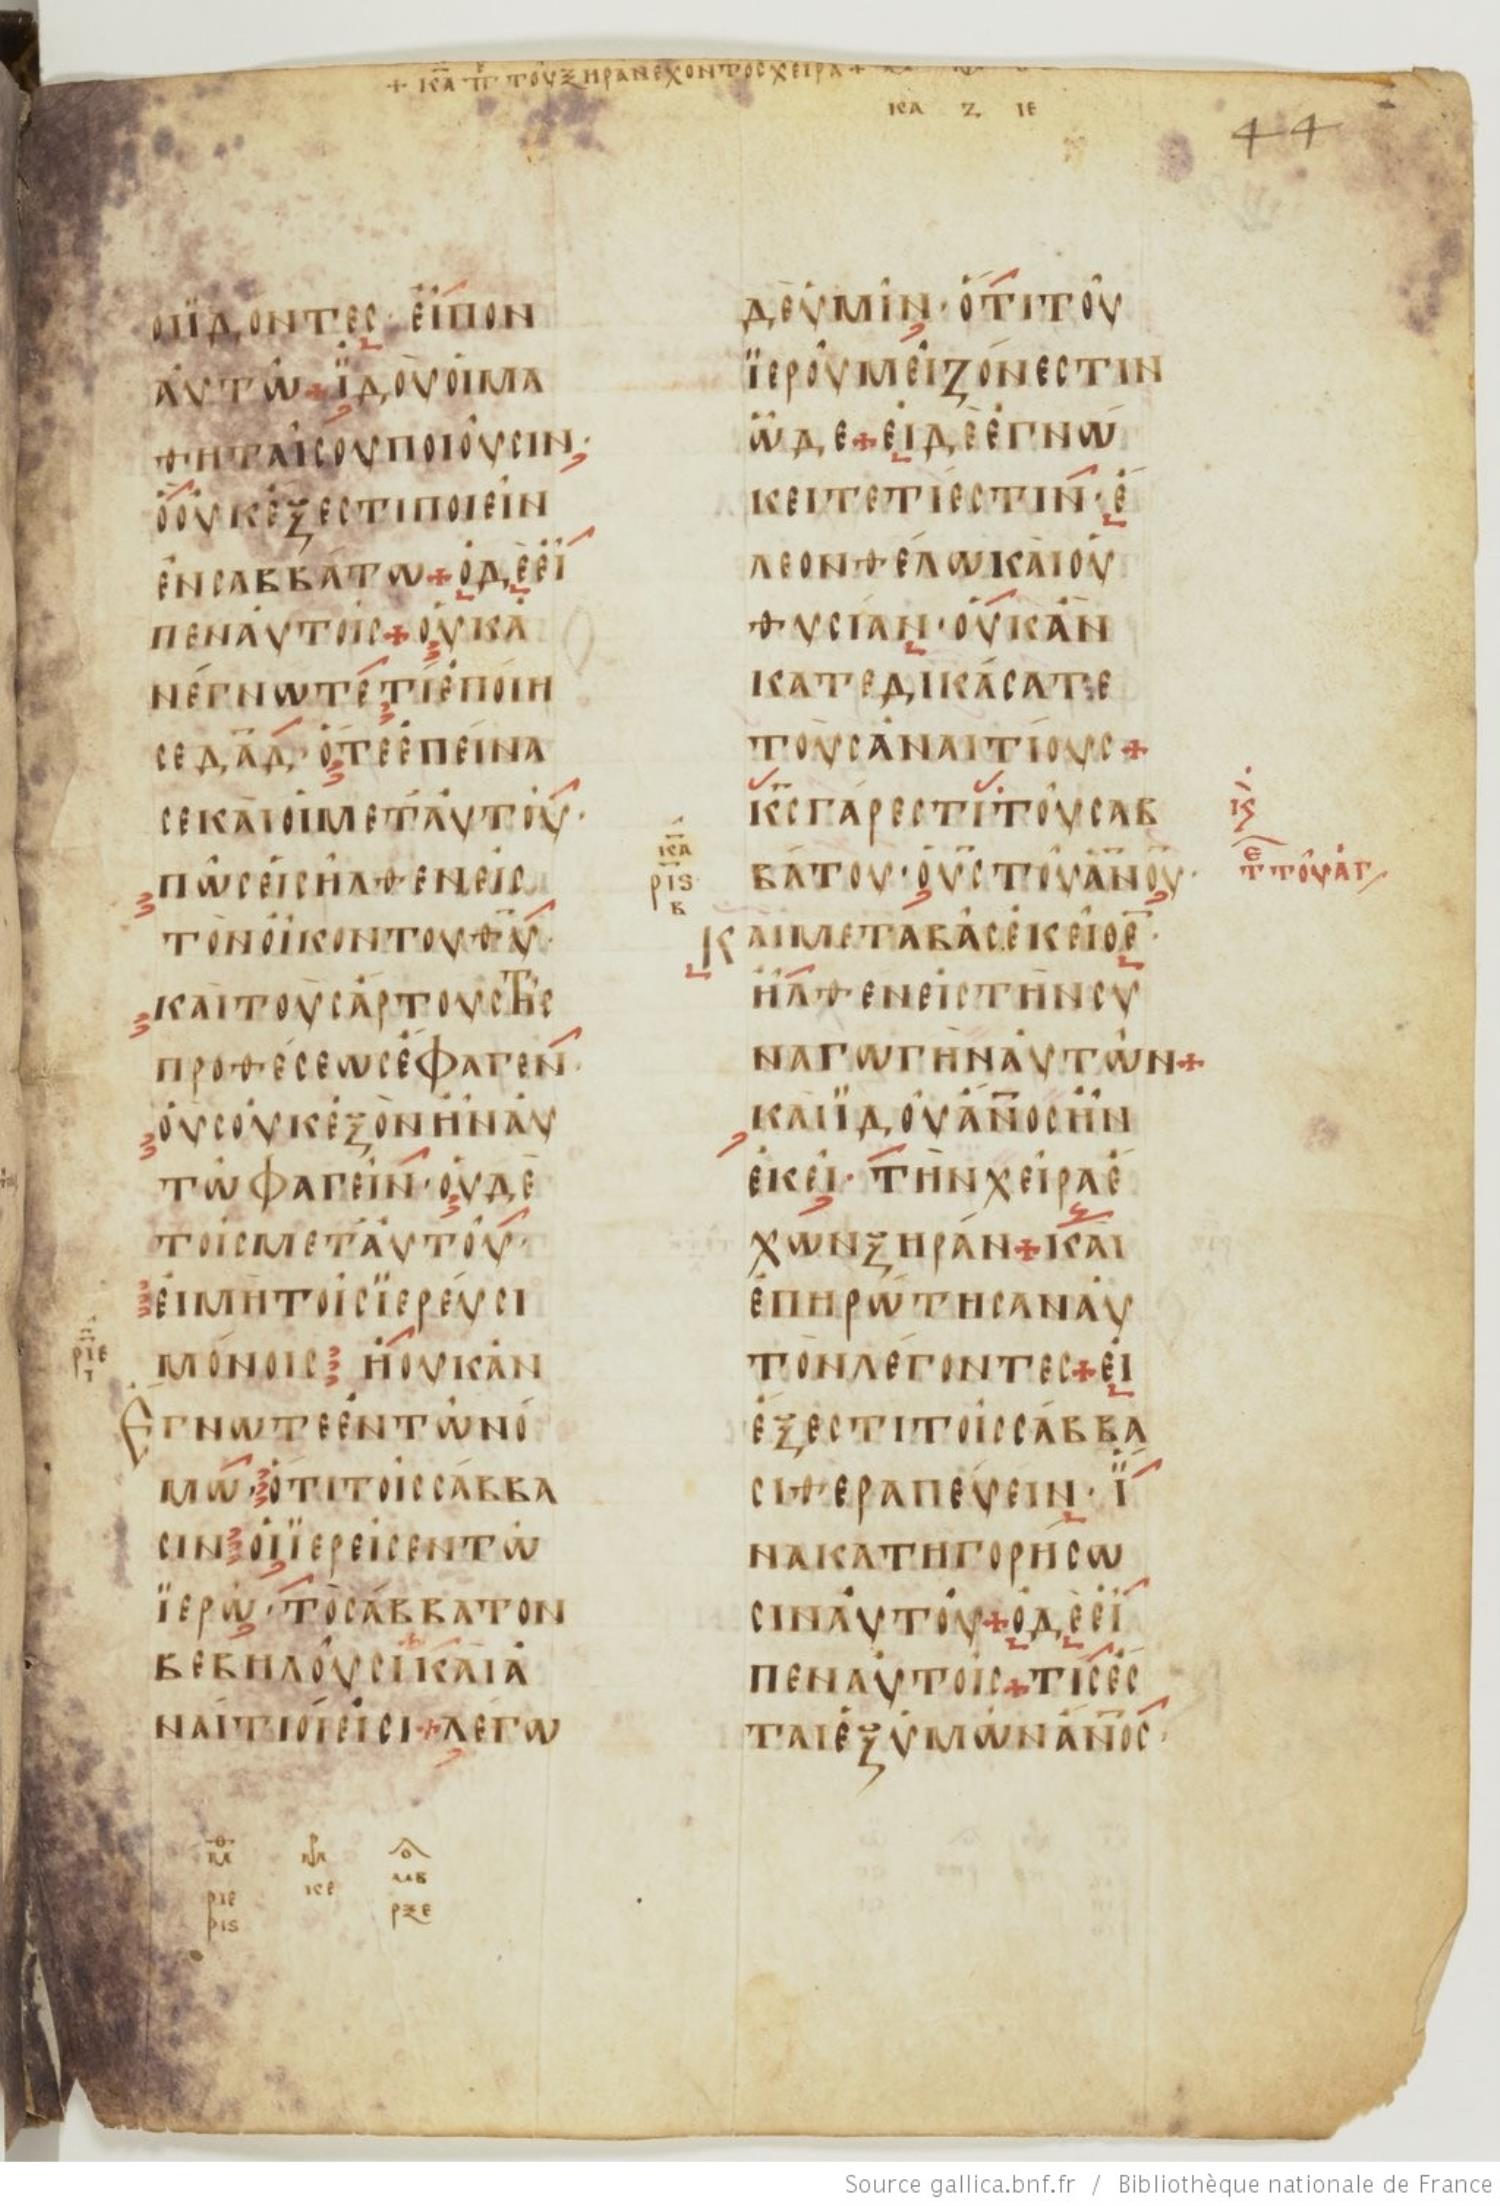 + ΚΑ ΠΕ ΤΟΥ ΞΗΡΑΝ ΕΧΟΝΤΟΣ ΧΕΙΡΑ +
ΚΑ Ζ ΙΕ
44
ΟΙ ΪΔΟΝΤΕϹ · ΕΙΠΟΝ
ΑΥΤΩ + ΪΔΟΥ ΟΙ ΜΑ
ΘΗΤΑΙ ϹΟΥ ΠΟΙΟΥϹΙΝ ·
Ο ΟΥΚ ΕΞΕϹΤΙ ΠΟΙΕΙΝ
ΕΝ ϹΑΒΒΑΤΩ + Ο ΔΕ ΕΙ
ΠΕΝ ΑΥΤΟΙϹ + ΟΥΚ Α
ΝΕΓΝΩΤΕ ΤΙ ΕΠΟΙΗ
ϹΕ ΔΑΔ · ΟΤΕ ΕΠΕΙΝΑ
ϹΕ ΚΑΙ ΟΙ ΜΕΤ ΑΥΤΟΥ ·
ΠΩϹ ΕΙϹΗΛΘΕΝ ΕΙϹ
ΤΟΝ ΟΙΚΟΝ ΤΟΥ ΘΥ ·
ΚΑΙ ΤΟΥϹ ΑΡΤΟΥϹ ΤΗϹ
ΠΡΟΘΕϹΕΩϹ ΕΦΑΓΕΝ ·
ΟΥϹ ΟΥΚ ΕΞΟΝ ΗΝ ΑΥ
ΤΩ ΦΑΓΕΙΝ · ΟΥΔΕ
ΤΟΙϹ ΜΕΤ ΑΥΤΟΥ ·
ΕΙ ΜΗ ΤΟΙϹ ΪΕΡΕΥϹΙ
ΡΙΕ
Ι
ΜΟΝΟΙϹ Η ΟΥΚ ΑΝ
ΕΓΝΩΤΕ ΕΝ ΤΩ ΝΟ
ΜΩ · ΟΤΙ ΤΟΙϹ ϹΑΒΒΑ
ϹΙΝ ΟΙ ΪΕΡΕΙϹ ΕΝ ΤΩ
ΪΕΡΩ · ΤΟ ϹΑΒΒΑΤΟΝ
ΒΕΒΗΛΟΥϹΙ ΚΑΙ Α
ΝΑΙΤΙΟΙ ΕΙϹΙ + ΛΕΓΩ
ΔΕ ΥΜΙΝ · ΟΤΙ ΤΟΥ
ΪΕΡΟΥ ΜΕΙΖΟΝ ΕϹΤΙΝ
ΩΔΕ + ΕΙ ΔΕ ΕΓΝΩ
ΚΕΙΤΕ ΤΙ ΕϹΤΙΝ · Ε
ΛΕΟΝ ΘΕΛΩ ΚΑΙ ΟΥ
ΘΥϹΙΑΝ · ΟΥΚ ΑΝ
ΚΑΤΕΔΙΚΑϹΑΤΕ
ΤΟΥϹ ΑΝΑΙΤΙΟΥϹ +
ΚϹ ΓΑΡ ΕϹΤΙ ΤΟΥ ϹΑΒ
ΒΑΤΟΥ · Ο ΥϹ ΤΟΥ ΑΝΟΥ ·
ΚΑ
ΡΙϚ
Β
ΚΑΙ ΜΕΤΑΒΑϹ ΕΚΕΙΘΕ ·
ΗΛΘΕΝ ΕΙϹ ΤΗΝ ϹΥ
ΝΑΓΩΓΗΝ ΑΥΤΩΝ +
ΚΑΙ ΪΔΟΥ ΑΝΟϹ ΗΝ
ΕΚΕΙ · ΤΗΝ ΧΕΙΡΑ Ε
ΧΩΝ ΞΗΡΑΝ + ΚΑΙ
ΕΠΗΡΩΤΗϹΑΝ ΑΥ
ΤΟΝ ΛΕΓΟΝΤΕϹ + ΕΙ
ΕΞΕϹΤΙ ΤΟΙϹ ϹΑΒΒΑ
ϹΙ ΘΕΡΑΠΕΥΕΙΝ · Ϊ
ΝΑ ΚΑΤΗΓΟΡΗϹΩ
ϹΙΝ ΑΥΤΟΥ + Ο ΔΕ ΕΙ
ΠΕΝ ΑΥΤΟΙϹ + ΤΙϹ ΕϹ
ΤΑΙ ΕΞ ΥΜΩΝ ΑΝΟϹ ·
ΡΙΕ
ΡΙϚ
ΚΕ
ΡΞΕ
Source gallica.bnf.fr / Bibliothèque nationale de France